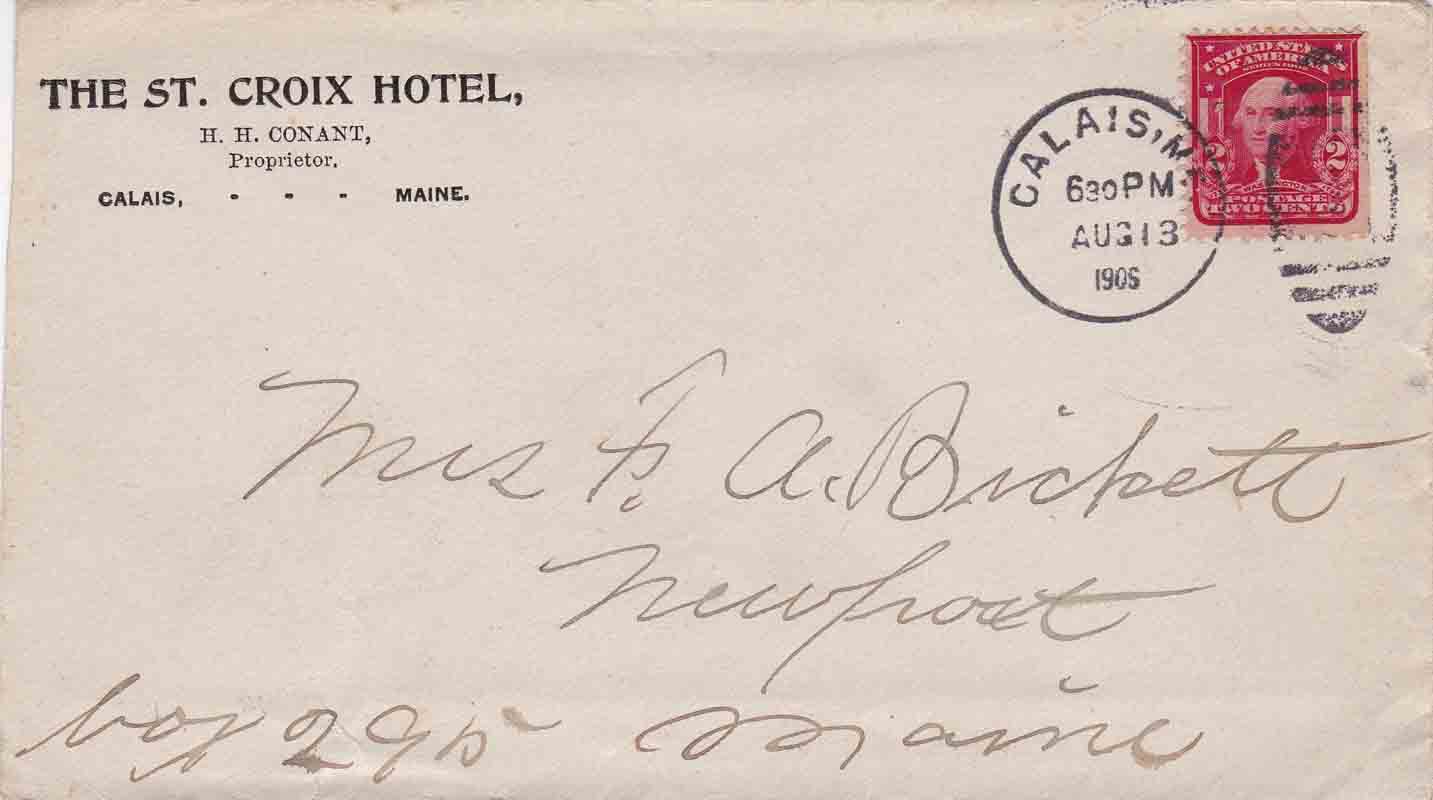 THE ST. CROIX HOTEL,
H. H. CONANT,
Proprietor.
CALAIS, - - - MAINE.
CALAIS, ME.
630 PM
AUG 13
1906
UNITED STATES
OF AMERICA
SERIES 1902
2 2
WASHINGTON
POSTAGE
TWO CENTS
Mrs F. A. Bickett
Newport
box 295 Maine